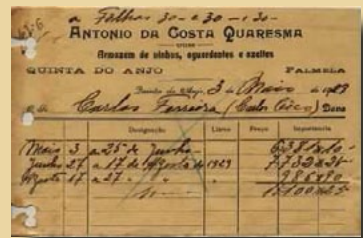 a Folhas 30-0 30-130-
ANTONIO DA COSTA QUARESMA
COM
Armazem de vinhos, aguardentes e azeites
QUINTA DO ANJO PALMELA
Quinta do Anjo, 3 de Maio de 1929
Carlos Ferreira (Carlos Deve
Designação Litros Preço Importancia
Maio 3 a 25 de Junho 6.381$10
Junho 27 a 17 de Agosto de 1929
Agosto 17 a 27 " " 986$90